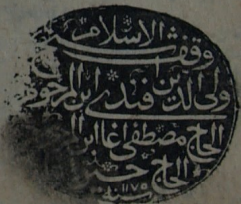 وقف شيخ الاسلام
ولي الدين افندي ابن المرحوم
الحاج مصطفى اغا ابن
الحاج حسين
سنة ١١٧٥